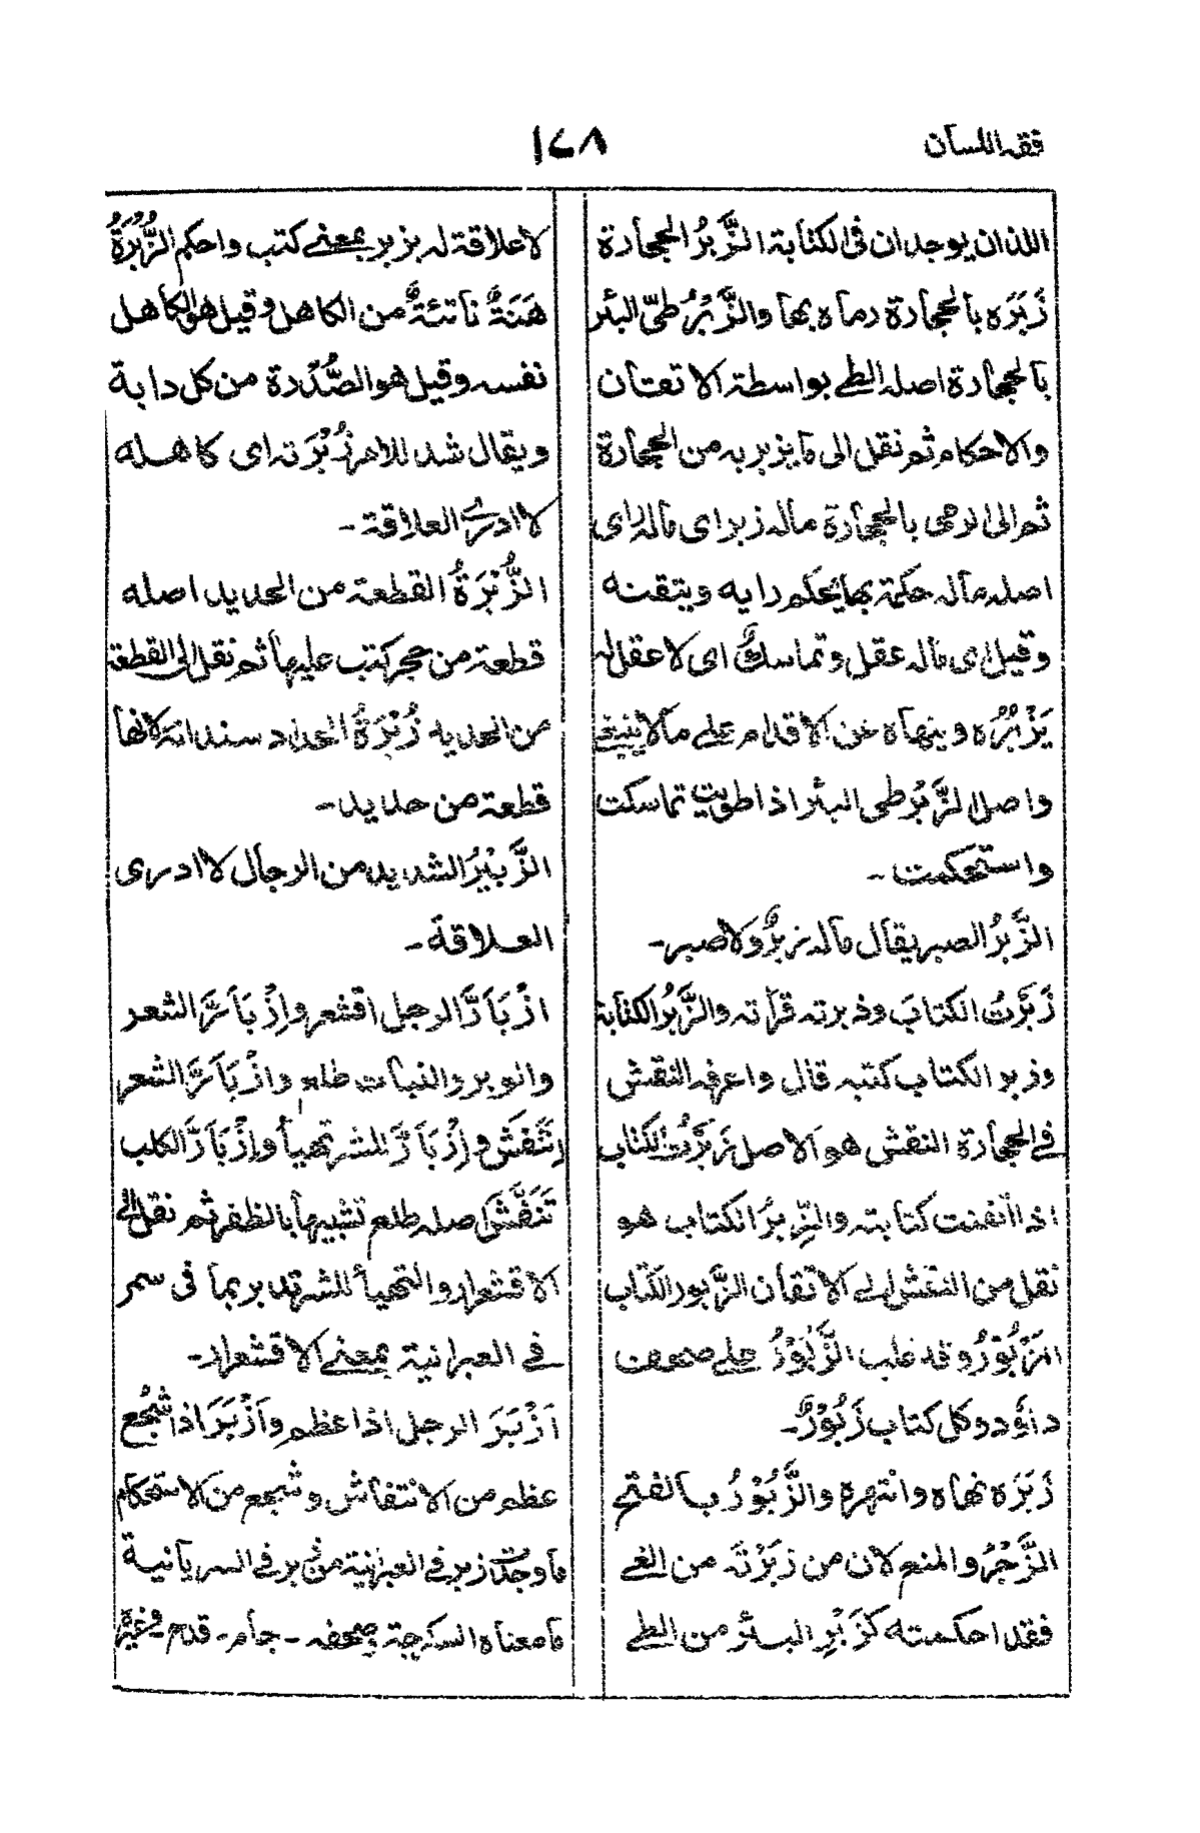 فقه اللسان
١٤٨
اللذان يوجدان فى الكتابة الزَّبرُ الحجارة
زَبَرَه بالحجارة رماه بها والزَّبْرُ طىّ البئر
بالحجارة اصله الطے بواسطة الاتقان
والاحكام ثم نقل الى ما يزبر به من الحجارة
ثم الى الرمى بالحجارة ماله زبر اى ماله راى
اصله ماله حكمة بها يحكم رايه ويتقنه
وقيل اى ماله عقل وتماسكٌ اى لا عقل له
يَزْبُرُه وينهاه عن الاقدام علے مالا ينبغے
واصل الزَّبرُ طى البئر اذا طويت تماسكت
واستحكمت ـ
الزَّبرُ الصبر يقال ماله زبرٌ ولا صبر ـ
زَبَرْتُ الكتابَ وذبرته قرأته والزَّبرُ الكتابة
وزبر الكتاب كتبه قال واعرفه النقش
فے الحجارة النقش هو الاصل زَبَرْتُ الكتاب
اذا اتقنت كتابته والزِّبرُ الكتاب هو
نقل من النقش الے الاتقان الزَّبور الكتاب
المَزْبُوْرُ وقد غلب الزَّبُوْرُ علے صحف
داؤد وكل كتاب زَبُوْرٌ ـ
زَبَرَه نهاه وانتهره والزَّبُوْرُ بالفتح
الزَّجْرُ والمنع لان من زبَرْتَه من الغے
فقد احكمته كزَبْرِ البئر من الطے
لا علاقة له بزبر بمعنے كتب واحكم الزُّبْرَةُ
هَنَةٌ ناتئةٌ من الكاهل وقيل هو الكاهل
نفسه وقيل هو الصُّدْرة من كل دابة
ويقال شد للامر زُبْرَته اى كاهله
لا ادرے العلاقة ـ
الزُّبْرَةُ القطعة من الحديد اصله
قطعة من حجر كتب عليها ثم نقل الى القطعة
من الحديد زُبْرَةُ الحداد سندانه لانها
قطعة من حديد ـ
الزَّبِيْرُ الشديد من الرجال لا ادرى
العلاقة ـ
ازْبَأَرَّ الرجل اقشعر وازْبَأَرَّ الشعر
والوبر والنبات طلع وازْبَأَرَّ الشعر
انتَفَشَ وازْبَأَرَّ للشر تهيأ وازْبَأَرَّ الكلب
تَنَفَّشَ اصله طلع تشبيها بالظفر ثم نقل الى
الاقشعرار والتهيأ للشر تدبر بما فى سمر
فے العبرانية بمعنے الاقشعرار ـ
اَزْبَرَ الرجل اذا عظم واَزْبَرَ اذا شجُع
عظم من الانتفاش وشجع من الاستحكام
ما وجدت زبر فے العبرانية من بر فے السريانية
ما معناه السكرجة صحفه ـ جام ـ قدم ـ وغيره